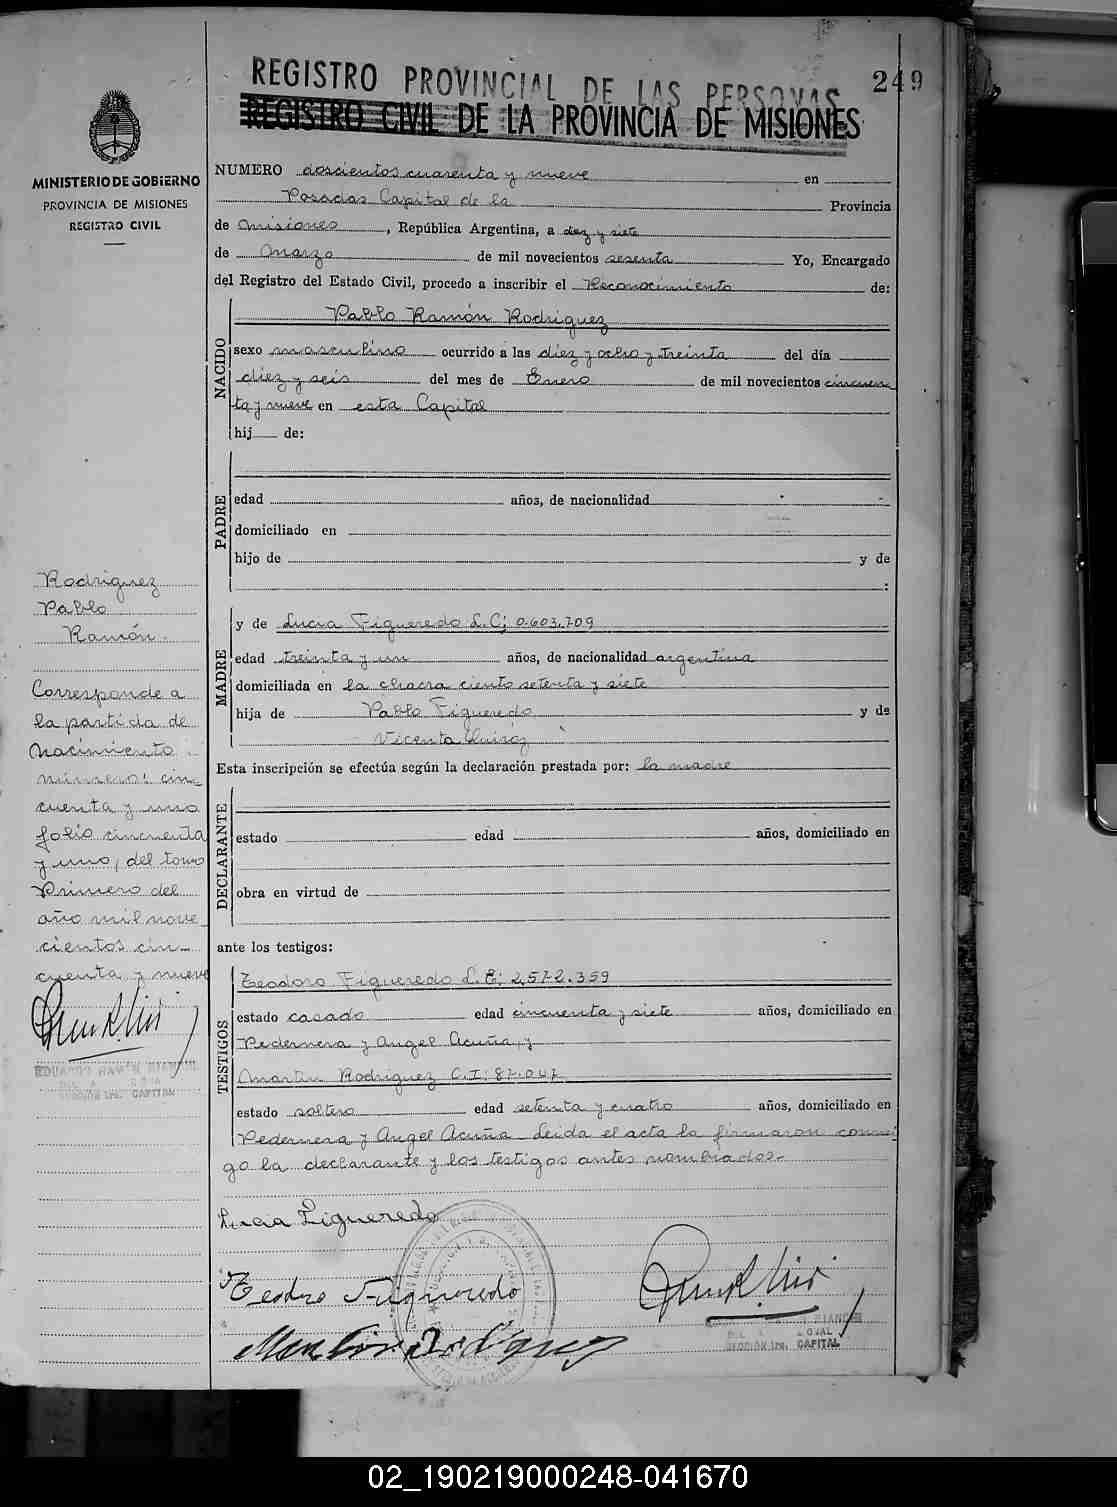 249
REGISTRO PROVINCIAL DE LAS PERSONAS
REGISTRO CIVIL DE LA PROVINCIA DE MISIONES
MINISTERIO DE GOBIERNO
PROVINCIA DE MISIONES
REGISTRO CIVIL
NUMERO doscientos cuarenta y nueve en
Posadas Capital de la Provincia
de Misiones, República Argentina, a diez y siete
de Marzo de mil novecientos sesenta Yo, Encargado
del Registro del Estado Civil, procedo a inscribir el Reconocimiento de:
NACIDO
Pablo Ramón Rodriguez
sexo masculino ocurrido a las diez y ocho y treinta del día
diez y seis del mes de Enero de mil novecientos cincuen
ta y nueve en esta Capital
hij de:
PADRE
edad años, de nacionalidad
domiciliado en
hijo de y de
:
MADRE
y de Lucia Figueredo L.C; 0.603.709
edad treinta y un años, de nacionalidad argentina
domiciliada en la chacra ciento setenta y siete
hija de Pablo Figueredo y de
Vicenta Quiroz
Esta inscripción se efectúa según la declaración prestada por: la madre
DECLARANTE
estado edad años, domiciliado en
obra en virtud de
ante los testigos:
TESTIGOS
Teodoro Figueredo L.E; 2.572.359
estado casado edad cincuenta y siete años, domiciliado en
Pedernera y Angel Acuña, y
Martin Rodriguez C.I: 87.047
estado soltero edad setenta y cuatro años, domiciliado en
Pedernera y Angel Acuña. Leida el acta la firmaron conmi
go la declarante y los testigos antes nombrados.-
Lucia Figueredo
Teodoro Figueredo
Martin Rodriguez
SECCION 1ra. CAPITAL
Rodriguez
Pablo
Ramón.
Corresponde a
la partida de
Nacimiento
número: cin
cuenta y uno
folio cincuenta
y uno, del tomo
Primero del
año mil nove
cientos cin-
cuenta y nueve
EDUARDO RAMON
SECCION 1ra. CAPITAL
02_190219000248-041670